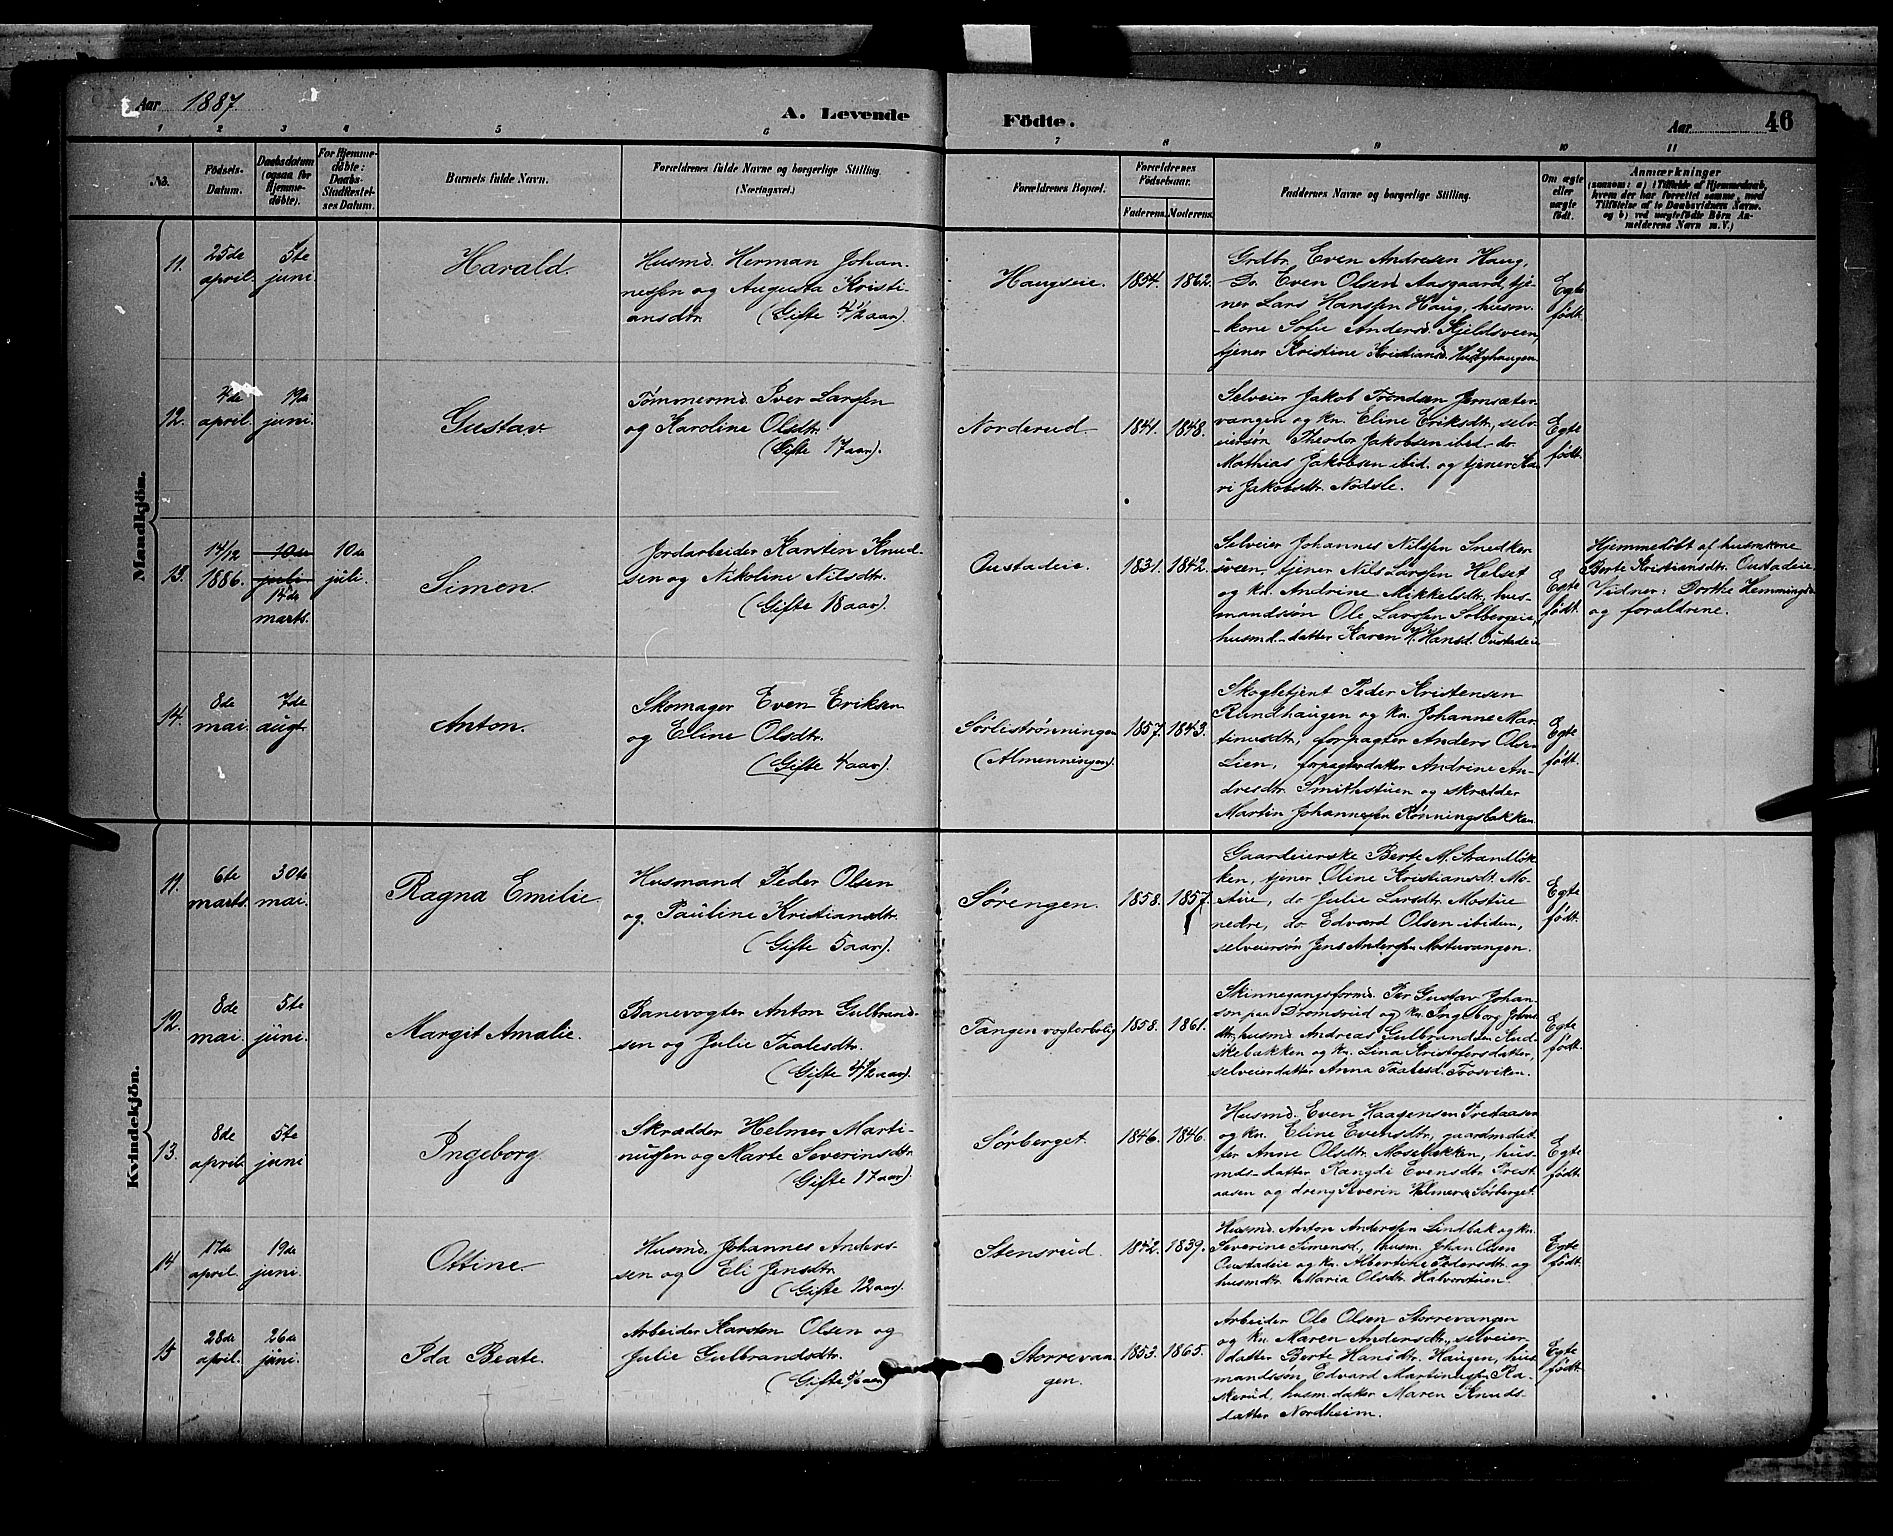 Aar 1887
A. Levende Födte.
Aar 46
1 2 3 4 5 6 7 8 9 10 11
No.
Födsels-
Datum.
Daabsdatum
(ogsaa for
Hjemme-
döbte).
For Hjemme-
döbte:
Daabs-
Stadfæstel-
ses Datum.
Barnets fulde Navn.
Forældrenes fulde Navne og borgerlige Stilling
(Næringsvei.)
Forældrenes Bopæl.
Forældrenes
Födselsaar.
Faderens. Moderens.
Faddernes Navne og borgerlige Stilling.
Om ægte
eller
uægte
födt.
Anmærkninger
(saasom: a) i Tilfælde af Hjemmedaab,
hvem der har forrettet samme, med
Tilföielse af to Daabsvidners Navne.
og b) ved uægtefödte Börn An-
melderens Navn m. V.)
Mandkjön.
11.
25de
april
5te
juni
Harald.
Husmd. Herman Johan-
nessen og Augusta Kristi-
ansdtr.
(Gifte 4 1/2 aar).
Haugseie.
1854. 1862.
Grdbr. Even Andresen Haug,
Do. Even Olsen Aasgaard, tje-
ner Lars Hanssen Haug, husm-
kone Sofie Andersd. Kjeldsveen,
tjener Kristine Kristiansd. Husbyhaugen
Egte
födt.
12.
4de
april.
19de
juni.
Gustav
Tømmermd. Iver Larssen
og Karoline Olsdtr.
(Gifte 17 aar).
Norderud.
1841. 1848.
Selveier Jakob Trondsen Jernsæter-
vangen og kn. Eline Eriksdtr, selv-
eiersøn Theodor Jakobsen ibid. do.
Mathias Jakobsen ibid. og tjener Ka-
ri Jakobsdtr. Nødsle.
Egte
födt.
13.
14/12
1886.
10de
juli
14de
marts.
10de
juli.
Simen.
Jordarbeider Karsten Knud-
sen og Nikoline Nilsdtr.
(Gifte 18 aar).
Oustadeie.
1831. 1842.
Selveier Johannes Nilssen Snedker-
sveen, tjener Nils Larssen Helset
og kn. Andrine Mikkelsdtr, hus-
mandssøn Ole Larssen Solbergeie,
husmd.-datter Karen K. Hansd. Oustadeie
Egte
födt.
Hjemmedöbt af husmkone
Berte Kristiansdtr. Oustadeie.
Vidner: Dorthe Hemmingsd.
og forældrene.
14.
8de
mai.
7de
augt.
Anton.
Skomager Even Eriksen
og Eline Olsdtr.
(Gifte 4 aar).
Sørlistrønningen
(Almenningen).
1857. 1843.
Skogbetjent Peder Kristensen
Rundhaugen og kn. Johanne Mar-
tinusdtr, forpagter Anders Olsen
Lien, forpagterdatter Andrine An-
dresdtr. Smithstuen og skrædder
Martin Johannessen Rønningsbakken
Egte
födt.
Kvindekjön.
11.
6te
marts.
30te
mai.
Ragna Emilie.
Husmand Peder Olsen
og Pauline Kristiansdtr.
(Gifte 5 aar).
Sørengen.
1858. 1857.
Gaardeierske Berte M. Strandløk-
ken, tjener Oline Kristiansdt. Mo-
stue, do Julie Larsdtr. Mostue
nedre, do Edvard Olsen ibidem,
selveiersøn Jens Anderssen Mostuvangen.
Egte
födt.
12.
8de
mai.
5te
juni.
Margit Amalie.
Banevogter Anton Gulbrand-
sen og Julie Taalesdtr.
(Gifte 4 1/2 aar).
Tangen vogterbolig
1858. 1861.
Skinnegangsformd. Per Gustav Johan-
son paa Dromsrud og kn. Ingeborg Johns-
dtr, husmd Andreas Gulbrandsen
bakken og kn. Lina Kristofersdatter,
selveierdatter Anna Taalesd. Fossviken.
Egte
födt.
13.
8de
april.
5te
juni
Ingeborg.
Skrædder Helmer Marti-
nussen og Marte Severinsdtr
(Gifte 17 aar).
Sørberget.
1846. 1846.
Husmd. Even Haagensen Prestaasen
og kn. Eline Evensdtr, gaardmdat-
ter Anne Olsdtr. Mosebakken, hus-
mds-datter Rangdi Evensdtr. Prest-
aasen og dreng Severin Helmersen Sørberget.
Egte
födt.
14
17de
april.
19de
juni.
Ottine.
Husmd. Johannes Anders-
sen og Eli Jensdtr.
(Gifte 12 aar).
Stensrud.
1842. 1839.
Husmd. Anton Anderssen Lindbak og kn.
Severine Simensd., husm. Johan Olsen
Oustadeie og kn. Albertine Pedersdtr. og
husmdtr. Maria Olsdtr. Halvorstuen
Egte
födt.
15
28de
april.
26de
juni.
Ida Beate.
Arbeider Karsten Olsen og
Julie Gulbrandsdtr.
(Gifte aar)
Storrevan-
gen.
1853. 1865.
Arbeider Ole Olsen Storrevangen
og kn. Maren Andersdtr., selveier-
datter Berte Hansdtr. Haugen, hus-
mandssøn Edvard Martinussen Ra-
kerud, husm.datter Maren Knuds-
datter Nordheim.
Egte
födt.